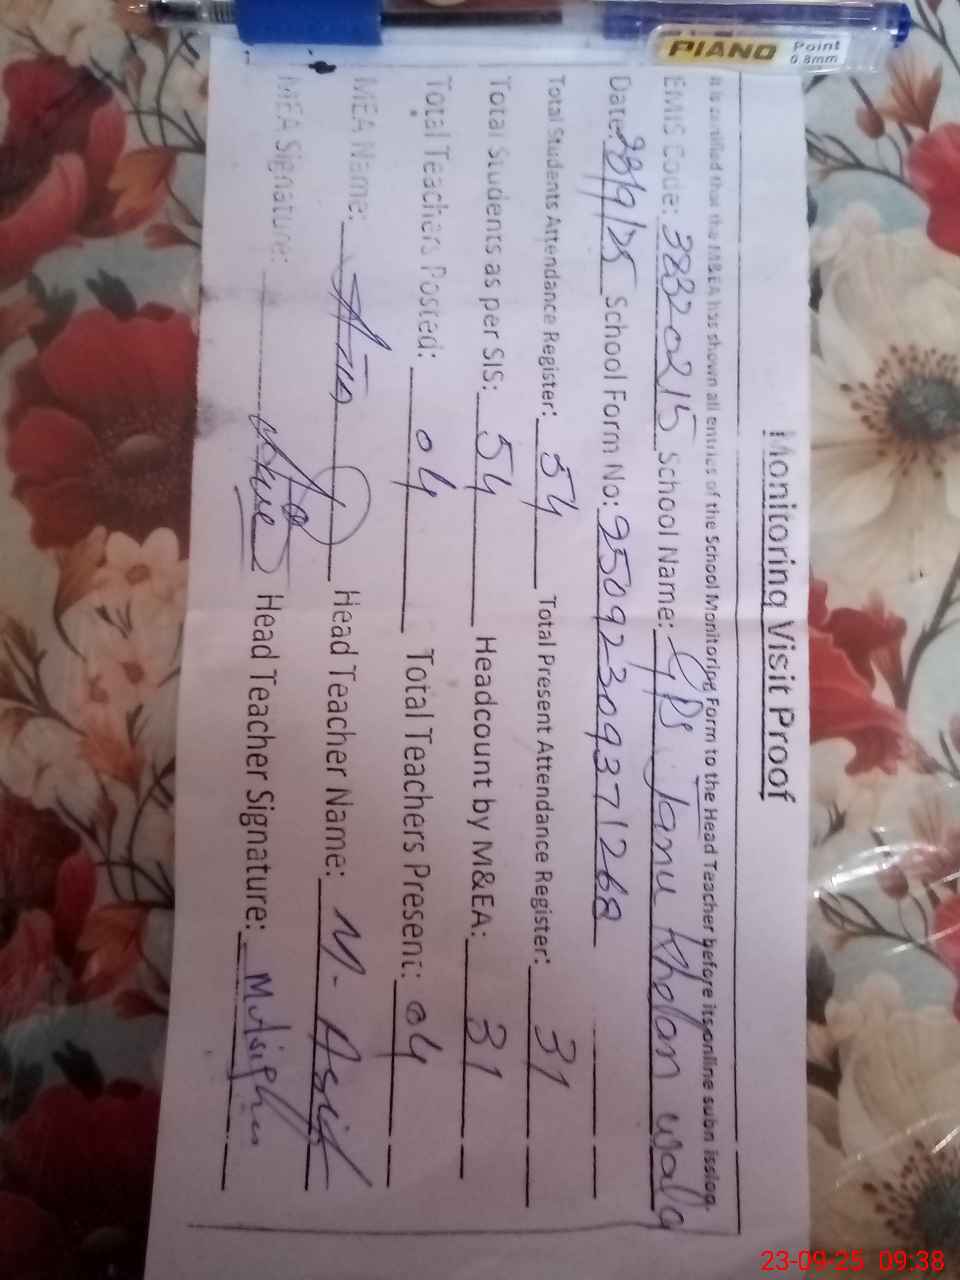 PIANO Point 0.8mm
Monitoring Visit Proof
It is certified that the M&EA has shown all entries of the School Monitoring Form to the Head Teacher before its online submission.
EMIS Code: 38320215 School Name: GPS Janu Kholan wala
Date: 23/9/25 School Form No: 25092309371268
Total Students Attendance Register: 54 Total Present Attendance Register: 31
Total Students as per SIS: 54 Headcount by M&EA: 31
Total Teachers Posted: 04 Total Teachers Present: 04
MEA Name: Head Teacher Name: M. Asif
MEA Signature: Head Teacher Signature:
23-09-25 09:38